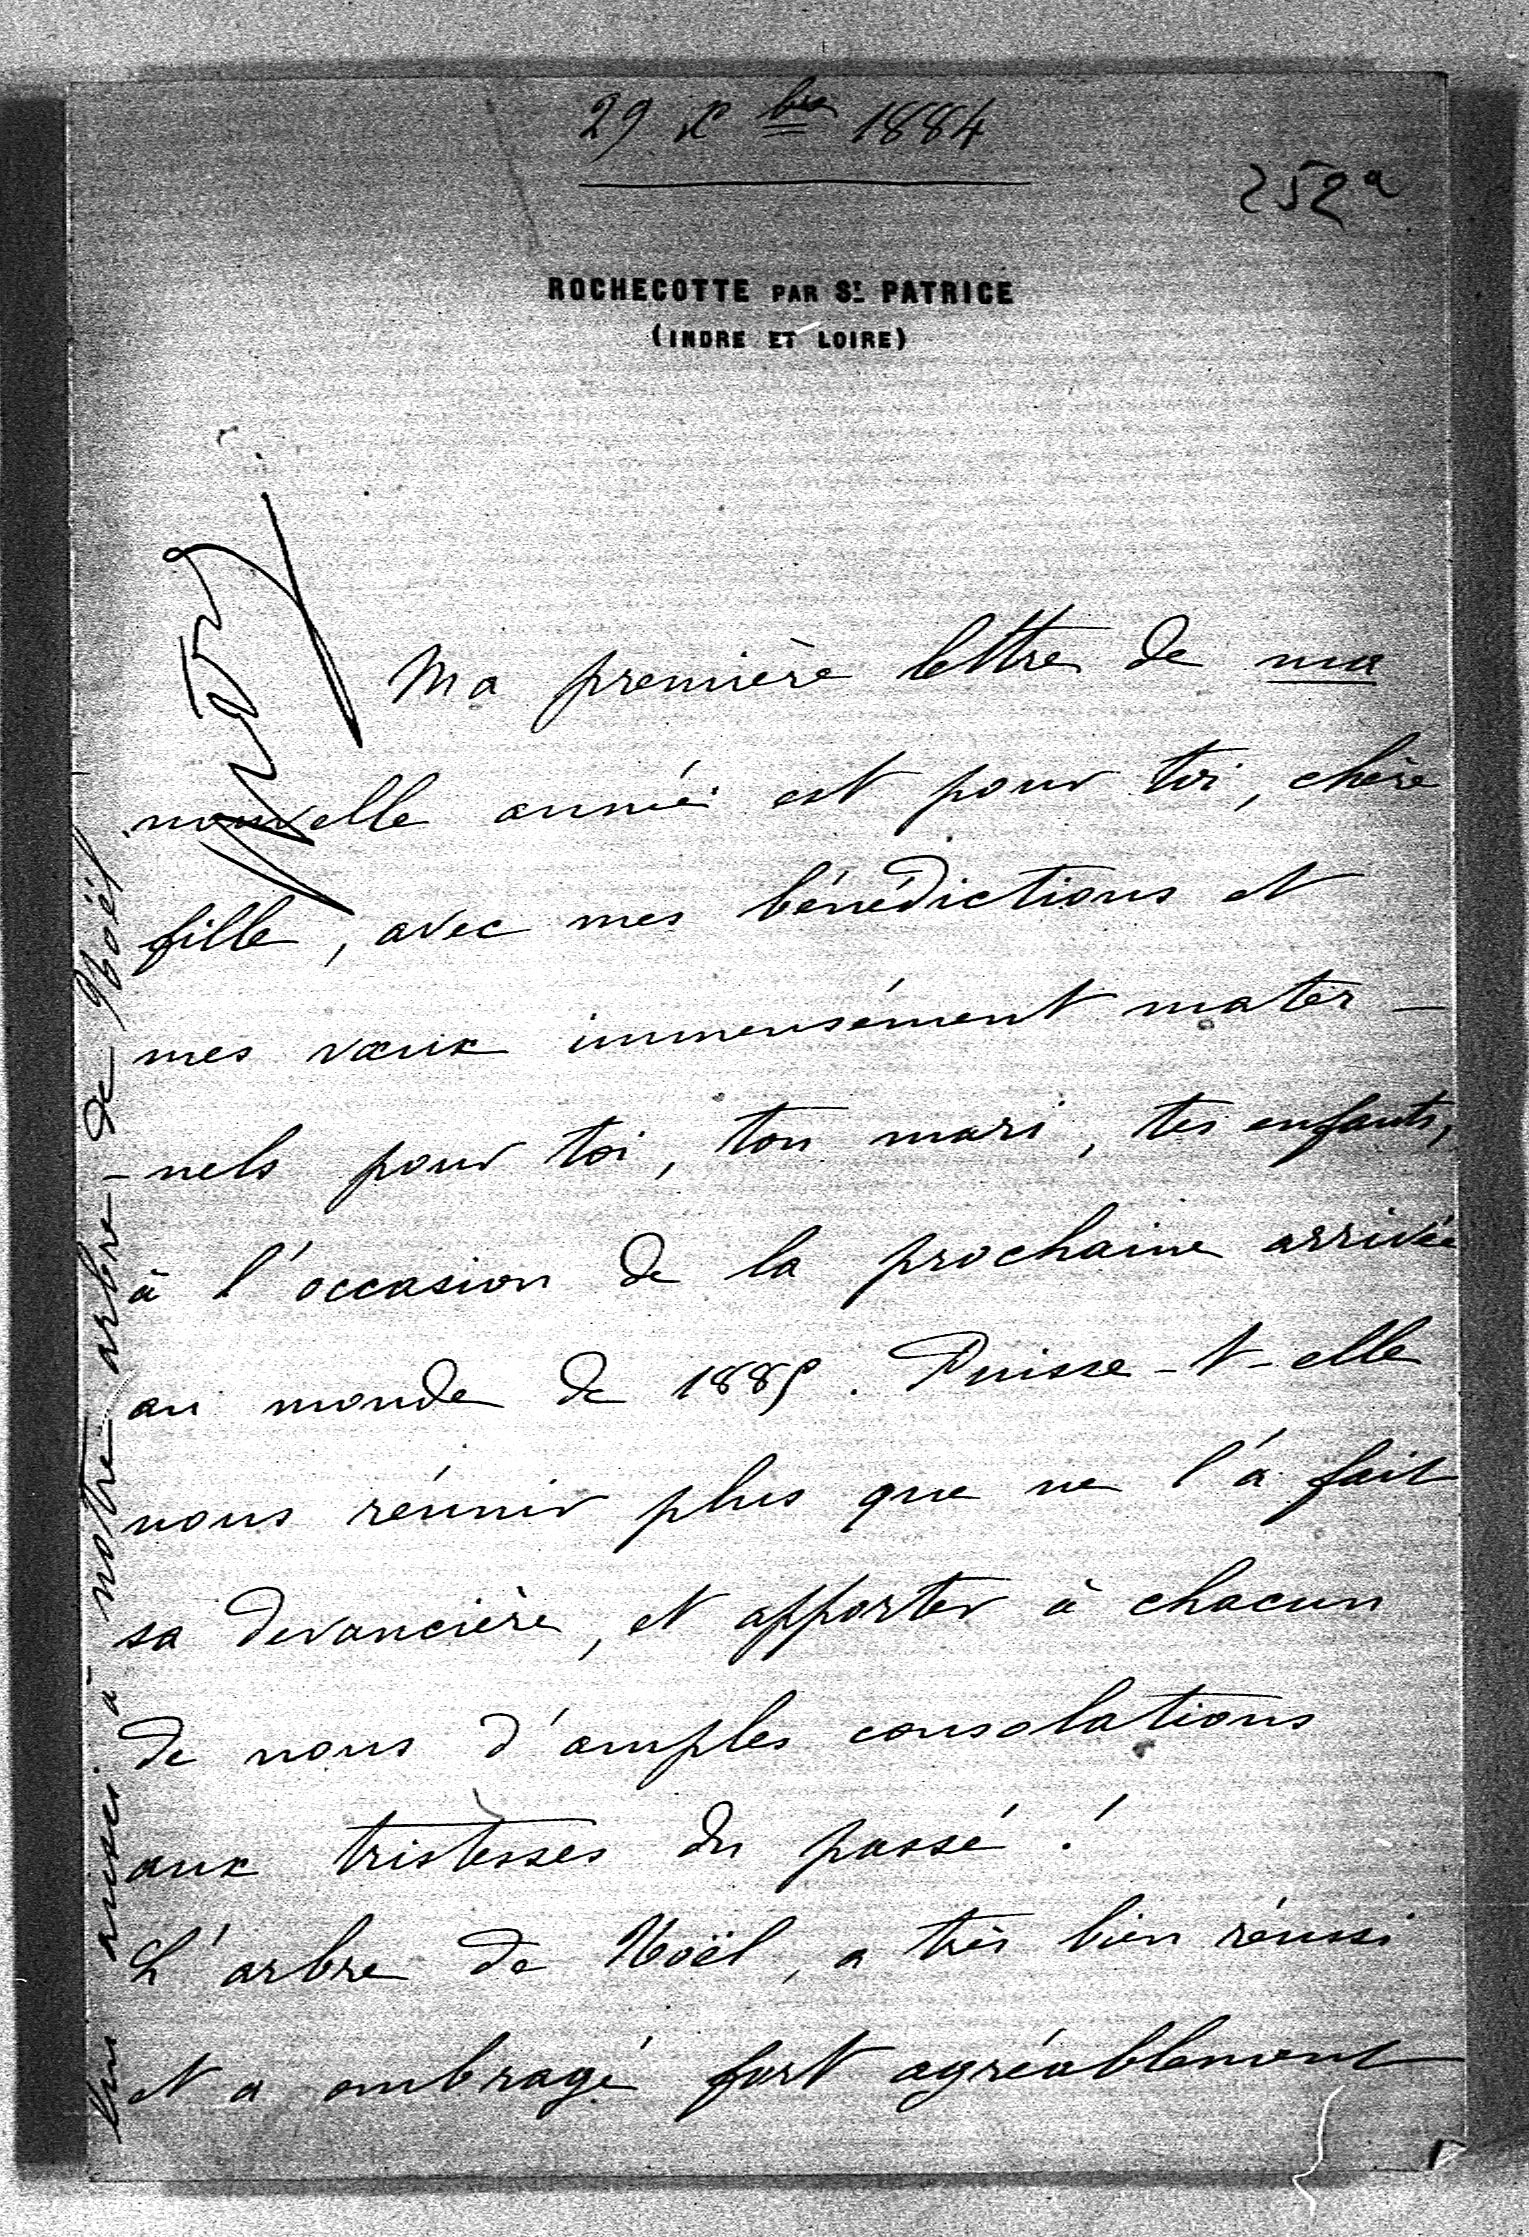 29 xbre 1884
252a
ROCHECOTTE PAR St PATRICE
(INDRE ET LOIRE)
Ma première lettre de ma
nouvelle année est pour toi, chère
fille, avec mes bénédictions et
mes vœux immensément mater-
-nels pour toi, ton mari, tes enfants,
à l'occasion de la prochaine arrivée
au monde de 1885. Puisse-t-elle
nous réunir plus que ne l'a fait
sa devancière, et apporter à chacun
de nous d'amples consolations
aux tristesses du passé !
L'arbre de Noël, a très bien réussi
et a ombragé fort agréablement
lui aussi à notre arbre de Noël